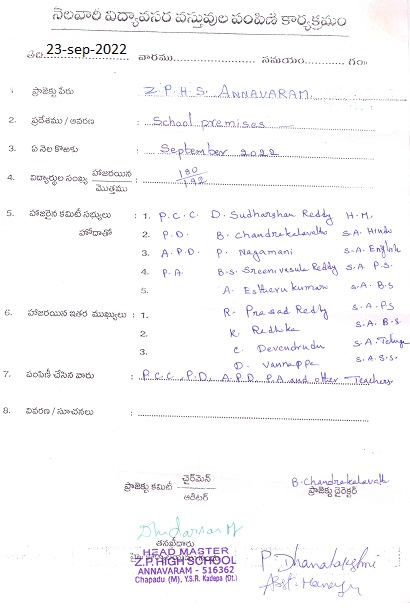 నెలవారీ విద్యావసర వస్తువుల పంపిణీ కార్యక్రమం
తేది 23-sep-2022 వారము సమయం గం॥
1. ప్రాజెక్టు పేరు Z.P.H.S. ANNAVARAM.
2. ప్రదేశము / ఆవరణ : School premises
3. ఏ నెల కొఱకు : September 2022
4. విద్యార్థుల సంఖ్య హాజరయిన / మొత్తము : 180 / 192
5. హాజరైన కమిటీ సభ్యులు : 1. P.C.C D. Sudharshan Reddy H.M.
హోదాతో 2. P.D. B. Chandrakalavathi S.A. Hindi
3. A.P.D P. Nagamani S.A. English
4. P.A. B.S. Sreenivasula Reddy S.A. P.S.
5. A. Estheru kumar S.A. B.S
6. హాజరయిన ఇతర ముఖ్యులు : 1. R. Prasad Reddy S.A. P.S
2. K. Radhika S.A. B.S.
3. C. Devendrudu S.A. Telugu
D. Vannappa S.A. S.S.
7. పంపిణీ చేసిన వారు : P.C.C, P.D, A.P.D, P.A and other Teachers
8. వివరణ / సూచనలు :
ప్రాజెక్టు కమిటీ చైర్‌మెన్ / ఆడిటర్
B. Chandrakalavathi
ప్రాజెక్టు డైరెక్టర్
తనఖీదారు
HEAD MASTER
Z.P. HIGH SCHOOL
ANNAVARAM - 516362
Chapadu (M), Y.S.R. Kadapa (Dt.)
P Dhanalakshmi
Asst. Manager